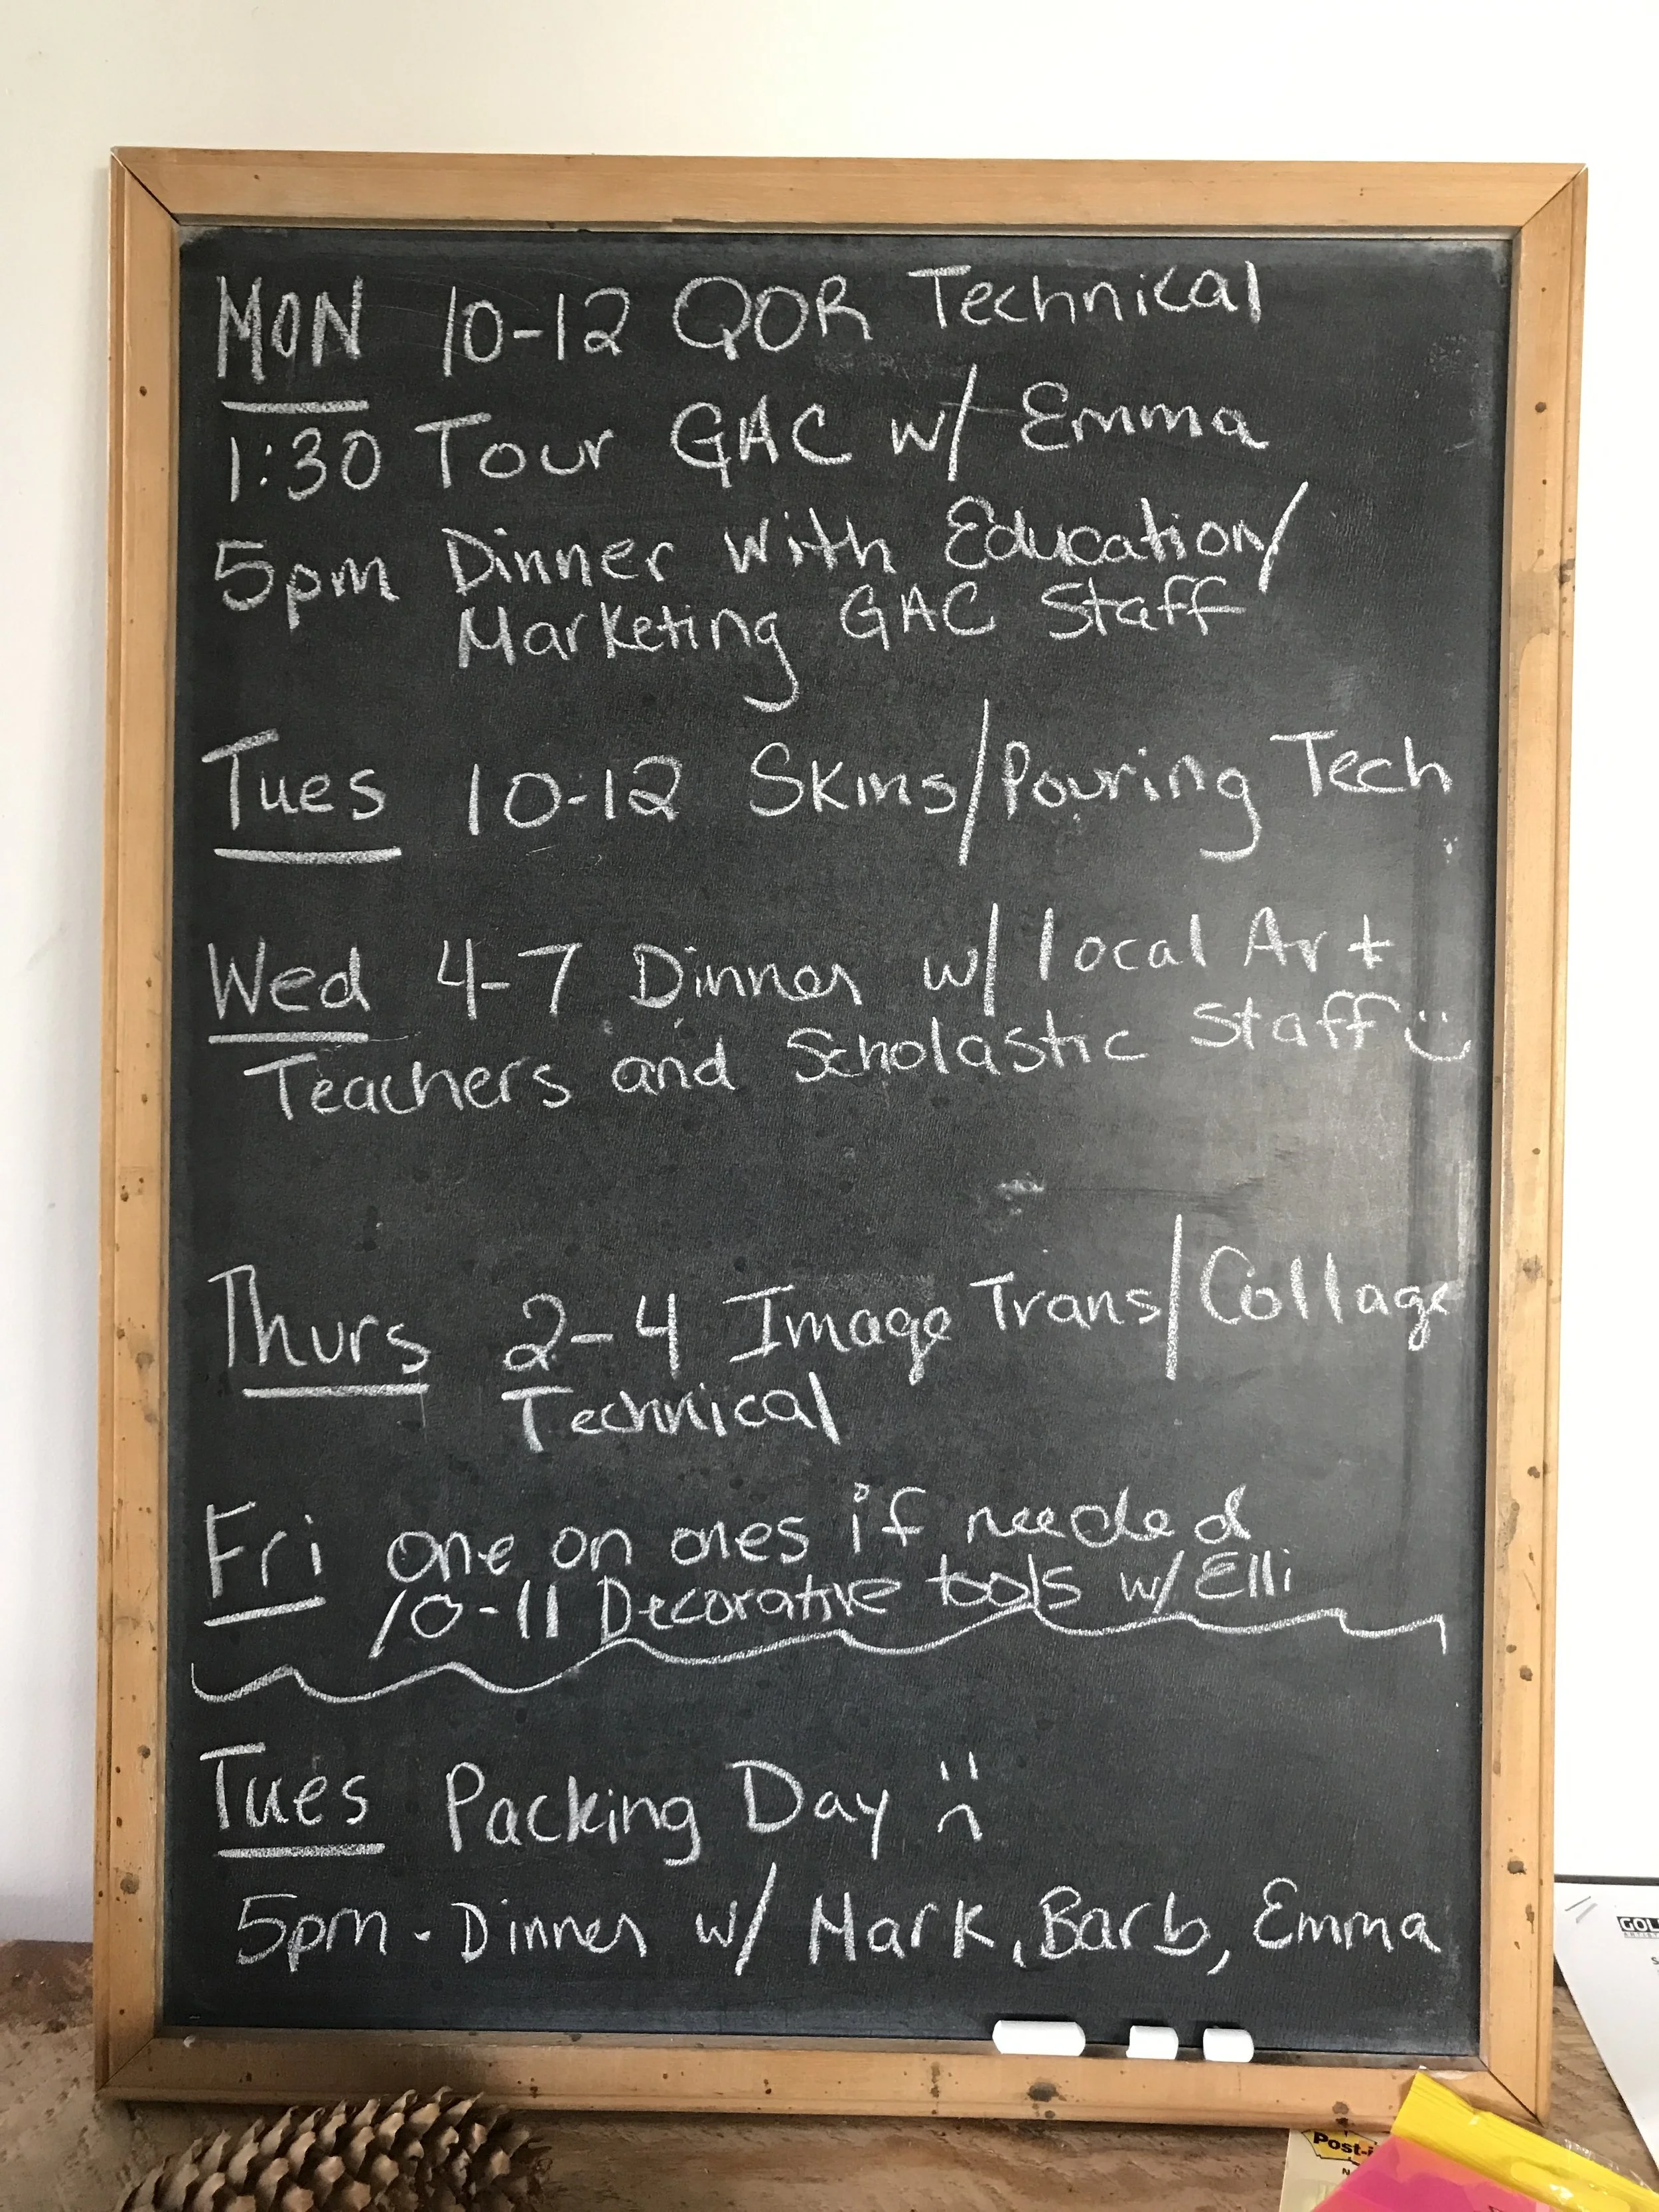 MON 10-12 QOR Technical
1:30 Tour GAC w/ Emma
5pm Dinner With Education/
Marketing GAC Staff
Tues 10-12 Skins/Pouring Tech
Wed 4-7 Dinner w/ local Art
Teachers and Scholastic Staff
Thurs 2-4 Image Trans/Collage
Technical
Fri one on ones if needed
10-11 Decorative tools w/ Elli
Tues Packing Day
5pm - Dinner w/ Mark, Barb, Emma
GOL
Post-i